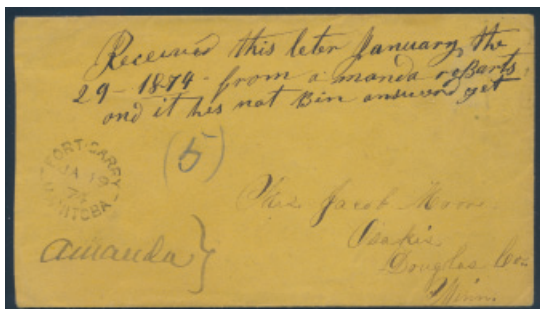 Received this leter January the
29 - 1874 - from a manda
and it hes not Bin answerd yet
(5)
FORT-GARRY
JA 19
74
MANITOBA
amanda }
Mrs Jacob
Osakis
Douglas Co.
Minn.